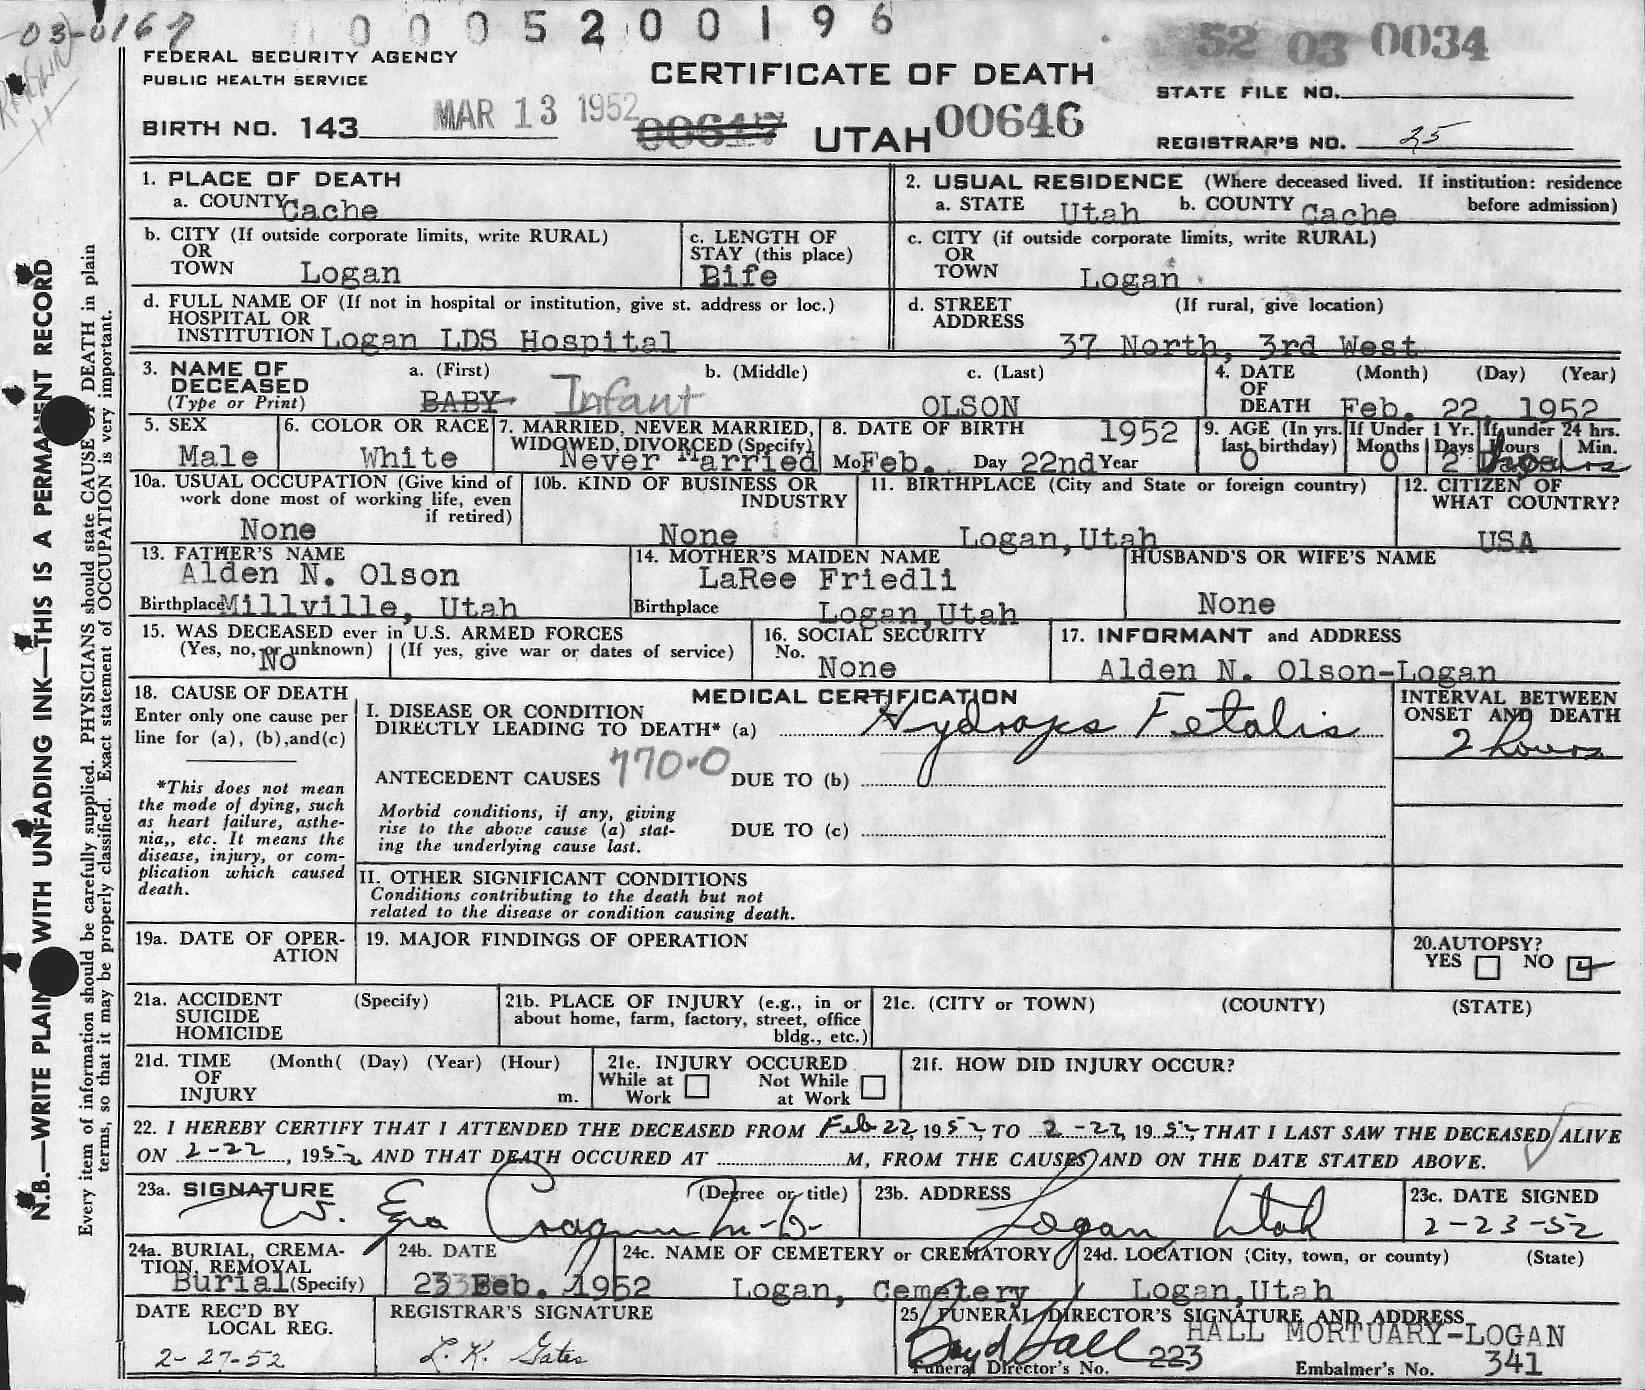 -03-0167
0 0 0 5 2 0 0 1 9 6
52 03 0034
FEDERAL SECURITY AGENCY
PUBLIC HEALTH SERVICE
CERTIFICATE OF DEATH
STATE FILE NO.
BIRTH NO. 143
MAR 13 1952
00647
UTAH
00646
REGISTRAR'S NO. 25
N.B.—WRITE PLAIN WITH UNFADING INK—THIS IS A PERMANENT RECORD
Every item of information should be carefully supplied. PHYSICIANS should state CAUSE OF DEATH in plain
terms, so that it may be properly classified. Exact statement of OCCUPATION is very important.
1. PLACE OF DEATH
a. COUNTY Cache
2. USUAL RESIDENCE (Where deceased lived. If institution: residence before admission)
a. STATE Utah b. COUNTY Cache
b. CITY (If outside corporate limits, write RURAL)
OR
TOWN Logan
c. LENGTH OF
STAY (this place)
Bife
c. CITY (if outside corporate limits, write RURAL)
OR
TOWN Logan
d. FULL NAME OF (If not in hospital or institution, give st. address or loc.)
HOSPITAL OR
INSTITUTION Logan LDS Hospital
d. STREET (If rural, give location)
ADDRESS
37 North, 3rd West
3. NAME OF DECEASED
(Type or Print)
a. (First) b. (Middle) c. (Last)
BABY Infant OLSON
4. DATE OF DEATH (Month) (Day) (Year)
Feb. 22, 1952
5. SEX
Male
6. COLOR OR RACE
White
7. MARRIED, NEVER MARRIED,
WIDOWED, DIVORCED (Specify)
Never Married
8. DATE OF BIRTH 1952
Mo Feb. Day 22nd Year
9. AGE (In yrs. last birthday) If Under 1 Yr. Months Days If under 24 hrs. Hours Min.
0 0 2 hours
10a. USUAL OCCUPATION (Give kind of
work done most of working life, even
if retired)
None
10b. KIND OF BUSINESS OR
INDUSTRY
None
11. BIRTHPLACE (City and State or foreign country)
Logan,Utah
12. CITIZEN OF
WHAT COUNTRY?
USA
13. FATHER'S NAME
Alden N. Olson
Birthplace Millville, Utah
14. MOTHER'S MAIDEN NAME
LaRee Friedli
Birthplace Logan,Utah
HUSBAND'S OR WIFE'S NAME
None
15. WAS DECEASED ever in U.S. ARMED FORCES
(Yes, no, or unknown) (If yes, give war or dates of service)
No
16. SOCIAL SECURITY
No. None
17. INFORMANT and ADDRESS
Alden N. Olson-Logan
18. CAUSE OF DEATH
Enter only one cause per
line for (a), (b),and(c)
*This does not mean
the mode of dying, such
as heart failure, asthe-
nia,, etc. It means the
disease, injury, or com-
plication which caused
death.
MEDICAL CERTIFICATION
I. DISEASE OR CONDITION
DIRECTLY LEADING TO DEATH* (a) Hydrops Fetalis
INTERVAL BETWEEN
ONSET AND DEATH
2 hours
ANTECEDENT CAUSES 770.0 DUE TO (b)
Morbid conditions, if any, giving
rise to the above cause (a) stat-
ing the underlying cause last.
DUE TO (c)
II. OTHER SIGNIFICANT CONDITIONS
Conditions contributing to the death but not
related to the disease or condition causing death.
19a. DATE OF OPER-
ATION
19. MAJOR FINDINGS OF OPERATION
20.AUTOPSY?
YES NO
21a. ACCIDENT (Specify)
SUICIDE
HOMICIDE
21b. PLACE OF INJURY (e.g., in or
about home, farm, factory, street, office
bldg., etc.)
21c. (CITY or TOWN) (COUNTY) (STATE)
21d. TIME (Month( (Day) (Year) (Hour)
OF
INJURY m.
21e. INJURY OCCURED
While at Work Not While at Work
21f. HOW DID INJURY OCCUR?
22. I HEREBY CERTIFY THAT I ATTENDED THE DECEASED FROM Feb 22, 1952, TO 2-22, 1952, THAT I LAST SAW THE DECEASED ALIVE
ON 2-22, 1952 AND THAT DEATH OCCURED AT M, FROM THE CAUSES AND ON THE DATE STATED ABOVE.
23a. SIGNATURE (Degree or title)
W. Ezra Cragun M-D-
23b. ADDRESS
Logan Utah
23c. DATE SIGNED
2-23-52
24a. BURIAL, CREMA-
TION, REMOVAL
Burial (Specify)
24b. DATE
23 Feb. 1952
24c. NAME OF CEMETERY or CREMATORY
Logan, Cemetery
24d. LOCATION (City, town, or county) (State)
Logan,Utah
DATE REC'D BY
LOCAL REG.
2-27-52
REGISTRAR'S SIGNATURE
L. K. Gates
25. FUNERAL DIRECTOR'S SIGNATURE AND ADDRESS
HALL MORTUARY-LOGAN
Boyd Hall
Funeral Director's No. 223 Embalmer's No. 341